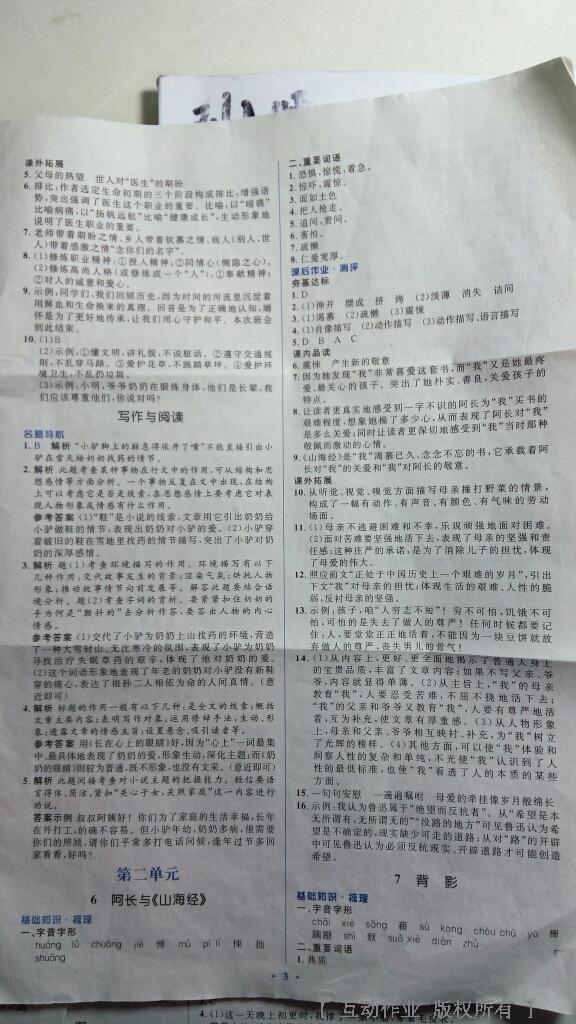 课外拓展
5. 父母的热望　世人对“医生”的期盼
6. 排比:作者选定生命初期的三个阶段构成排比,增强语
势,突出强调了医生这个职业的重要。比喻:以“暗礁”
比喻病痛,以“扬帆远航”比喻“健康成长”,生动形象地
说明了医生职业的重要。
7. 老师带着期盼之情、乡人带着钦慕之情、病人(别人、世
人)带着感激之情“念你们的名字”。
8. (1)修炼职业精神:①投入精神;②同情心(恻隐之心)。
(2)修炼高尚人格(或修炼成一个“人”):①奉献精神;
②对人的诚意和爱心。
9. 示例:同学们,我们回顾历史,因为时间的河流里沉淀着
用鲜血和生命换来的真理。回首是为了正确地认知,缅
怀是为了更好地传承,让我们用心守护和平。本次班会
到此结束。
10. (1)B
(2)示例:①懂文明,讲礼貌,不说脏话。②遵守交通规
则,不乱穿马路。③爱护花草,不践踏草坪。④爱护环
境卫生,不乱扔垃圾。
(3)示例:小明,爷爷奶奶在锻炼身体,他们是长辈,我
们应该尊重他们,你说对吗?
写作与阅读
名题导航
1. B　解析“小驴脚上的鞋急得张开了嘴”不能直接引出小
驴在雪天给奶奶找药的情节。
2. 解析 此题考查某种事物在行文中的作用,可从结构和思
想感情等方面分析。一个事物反复在文中出现,在结构
上可以考虑它是否是线索,在思想感情上要考虑它对表
现人物形象或情感有什么作用。
参考答案 (1)“鞋”是小说的线索,文章用它引出奶奶给
小驴做鞋的情节,表现出奶奶对小驴的爱。(2)小驴穿
着破旧的鞋在雪地里找药的情节描写,突出了小驴对奶
奶的深厚感情。
3. 解析 题(1)考查环境描写的作用。环境描写有以下
几种作用:交代故事发生的背景;渲染气氛;烘托人物
形象;推动故事情节向前发展等。解答此题要结合语
境分析。题(2)考查字词的赏析。要紧紧扣住奶奶的
手为何是“颤抖的”去分析作答,要答出人物的内心
情感。
参考答案 (1)交代了小驴为奶奶上山找药的环境,营造
了一种大雪封山、无比寒冷的氛围,表现了小驴为奶奶
寻找治疗失眠草药的艰辛,体现了他对奶奶的爱。
(2)这个词语形象地表现了年老的奶奶对小驴没有新鞋
穿的痛心,表达了祖孙二人相依为命的人间真情。(意
近即可)
4. 解析 标题的作用一般有以下几种:是全文的线索;概括
文章主要内容;表明写作对象;运用修辞手法,生动、形
象;透露文章的情感主旨;设置悬念,吸引读者等。
参考答案 用《长在心上的眼睛》好,因为“心上”一词最集
中、最具体地表现了奶奶的爱,形象生动,深化主题;而《奶
奶的眼睛》则较为普通,既不形象,也没有文采。(意近即可)
5. 解析 此题间接考查对小说主题的把握能力。短信要语
言得体,简洁,要扣“关心子女,关照家庭”这一内容进行
劝说。
答案示例 叔叔阿姨好!你们为了家庭的生活幸福,长年
在外打工,的确不容易。但小驴年幼,奶奶多病,很需要
你们的照顾,请你们平常多打电话问候,逢年过节多回
家看看,好吗?
第二单元
6　阿长与《山海经》
基础知识·梳理
一、字音字形
huáng lǚ chuāng jié 惮 mù pī lì 悚 拙
shuāng
二、重要词语
1. 恐惧,惊慌,着急。
2. 惊吓,震惊。
3. 面如土色
4. 把人抢走。
5. 追问,责问。
6. 害怕。
7. 疏懒
8. 仁爱宽厚。
课后作业·测评
夯基达标
1. D
2. (1)伸开　摆成　挤　烤　(2)淡薄　消失　诘问
3. (1)渴慕　(2)疏懒　(3)震悚
4. (1)肖像描写　(2)动作描写　(3)动作描写、语言描写
5. D　B　A　C
课内品读
6. 震悚　产生新的敬意
7. 因为她发现“我”非常喜爱这套书,而“我”又是她最疼
爱、最关心的孩子。突出了她朴实、善良、关爱孩子的
特点。
8. 让读者更真实地感受到一字不识的阿长为“我”买书的
艰难程度,想象她操了多少心,从而表现了阿长对“我”
是多么关爱;同时让读者更深切地感受到“我”当时那种
敬佩而激动的心情。
9. 《山海经》是“我”渴慕已久、念念不忘的书,它承载着阿
长对“我”的关爱和“我”对阿长的敬意。
课外拓展
10. 从听觉、视觉、嗅觉方面描写母亲捶打野菜的情景,
构成了一幅有动作、有声音、有颜色、有气味的劳动
场面。
11. (1)母亲不逃避困难和不幸,乐观顽强地面对困难。
(2)面对苦难要坚强地活下去,表现了母亲的坚强和责
任感;这种庄严的承诺,是为了消除儿子的担忧,体现
了母爱的伟大。
12. 照应前文“正处于中国历史上一个艰难的岁月”,引出
下文“我”对母亲的担忧;体现生活的艰难、人性的脆
弱,反衬母亲的坚强。
13. 示例:孩子,咱“人穷志不短”!穷不可怕,饥饿不可
怕,可怕的是失去了做人的尊严!任何时候都要记
住:人,要堂堂正正地活着,不能因为一块豆饼就放
弃做人的尊严,丧失男儿的骨气!
14. (1)从内容上,更好、更全面地揭示了普通人身上
的宝贵品质,丰富了文章内容;如果不写父亲、爷
爷,内容就显得单薄。(2)从主旨上,“我”的母亲
教育“我”,人要忍受苦难,不屈不挠地活下去;
“我”的父亲和爷爷又教育“我”,人要有尊严地活
着,互为补充,使文章有厚重感。(3)从人物形象
上,母亲和父亲、爷爷相互映衬、补充,为“我”树立
了光辉的榜样。(4)其他方面,可以使“我”体验和
洞察人性的复杂和单纯,不光使“我”认识到了人
性的最低标准,也使“我”看透了人的本质的某些
方面。
15. 一句句安慰　一遍遍嘱咐　母爱的牵挂像岁月般绵长
16. 示例:我认为鲁迅属于“绝望而反抗者”。从“希望是本
无所谓有,无所谓无的”“没路的地方”可见鲁迅认为希
望是不确定的,现实缺少可走的道路;从对“路”的开辟
中可见鲁迅认为必须反抗现实、开辟道路才可能创造
希望。
7　背　影
基础知识·梳理
一、字音字形
chāi xié sāng 藉 sù kang chóu chú yū 栅
蹒跚 shì 颓 suǒ xiè diàn zhù
二、重要词语
1. 典质
· 3 ·
[ 互动作业 版权所有 ]